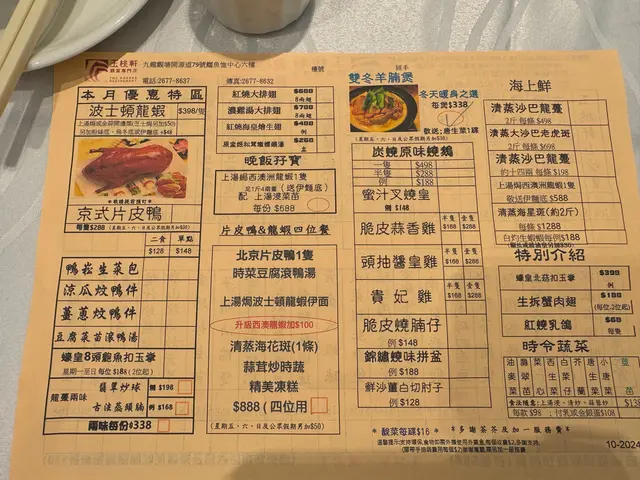 玉桂軒
九龍觀塘開源道79號鱷魚恤中心六樓
電話:2677-8637
傳真:2677-8632
檯號
本月優惠特區
波士頓龍蝦 $398/隻
京式片皮鴨
每隻$288
二食 單點
$128 $148
鴨崧生菜包
涼瓜炆鴨件
薑蔥炆鴨件
豆腐菜苗滾鴨湯
蠔皇8頭鮑魚扣玉掌
星期一至日 每位 $188 (2位起)
龍躉兩味
翡翠炒球 例 $198
古法蒸頭腩 例 $168
兩味每份$338
紅燒大排翅 $688
濃雞湯大排翅 $788
紅燒海皇燴生翅 $488
晚飯孖寶
上湯焗西澳洲龍蝦1隻
足1斤4兩重 (送伊麵底)
配 上湯浸菜苗
每份 $588
片皮鴨&龍蝦四位餐
北京片皮鴨1隻
時菜豆腐滾鴨湯
上湯焗波士頓龍蝦伊面
升級西澳龍蝦加$100
清蒸海花斑(1條)
蒜茸炒時蔬
精美凍糕
$888 (四位用
(星期五、六、日及公眾假期另加$50)
雙冬羊腩煲
冬天暖身之選
每煲$338
敬送:唐生菜1碟
炭燒原味燒鵝
一隻 $498
半隻 $288
例 $188
蜜汁叉燒皇
例 $148
脆皮蒜香雞 半隻 $168 全隻 $288
頭抽醬皇雞 半隻 $168 全隻 $288
貴妃雞 半隻 $168 全隻 $288
脆皮燒腩仔
例 $138
錦鏽燒味拼盆
例 $188
鮮沙薑白切肘子
例 $128
海上鮮
清蒸沙巴龍躉
2斤 每條 $498
清蒸大沙巴老虎斑
2斤 每條 $698
清蒸沙巴龍躉
約十四兩 每條 $198
上湯焗西澳龍蝦1隻
敬送伊麵 $588
清蒸海星斑(約2斤)
每條 $1288
白灼生蝦蝦每例$188
特別介紹
蠔皇北菇扣玉掌 $398 例
生拆蟹肉翅 $188 (每位,2位起)
紅燒乳鴿 $68 每隻
時令蔬菜
每款 $98
* 酸菜每碟$16 *
* 多謝茶芥及加一服務費 *
10-2024